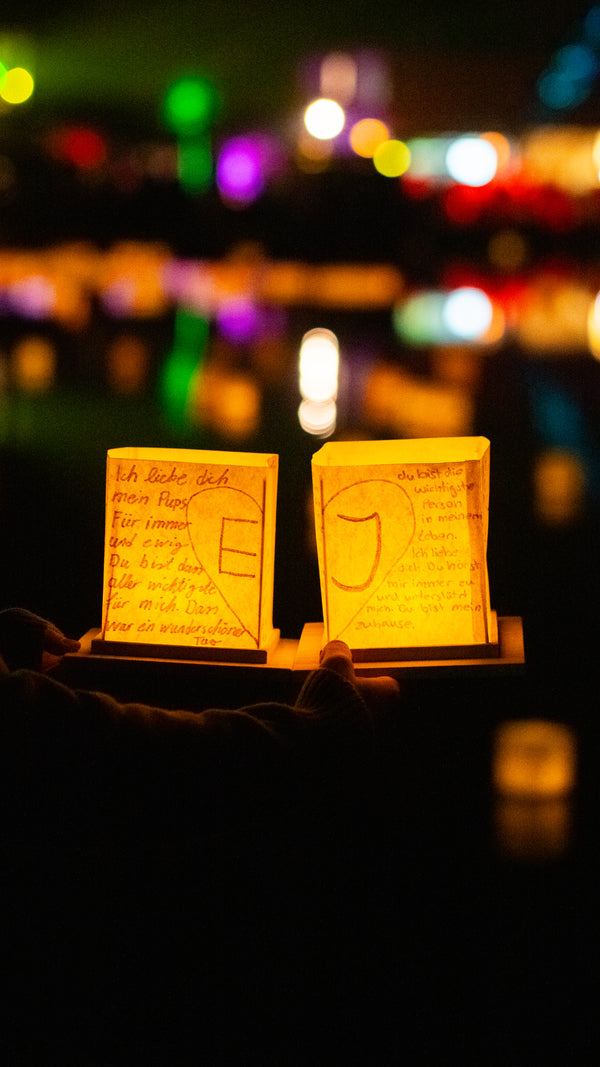 Ich liebe dich
mein Pups
Für immer
und ewig
Du bist das
aller wichtigste
für mich. Das
war ein wunderschöner
Tag
E
J
du bist die
wichtigste
Person
in meinem
Leben.
Ich liebe
dich. Du hörst
mir immer zu
und unterstützt
mich. Du bist mein
zuhause.